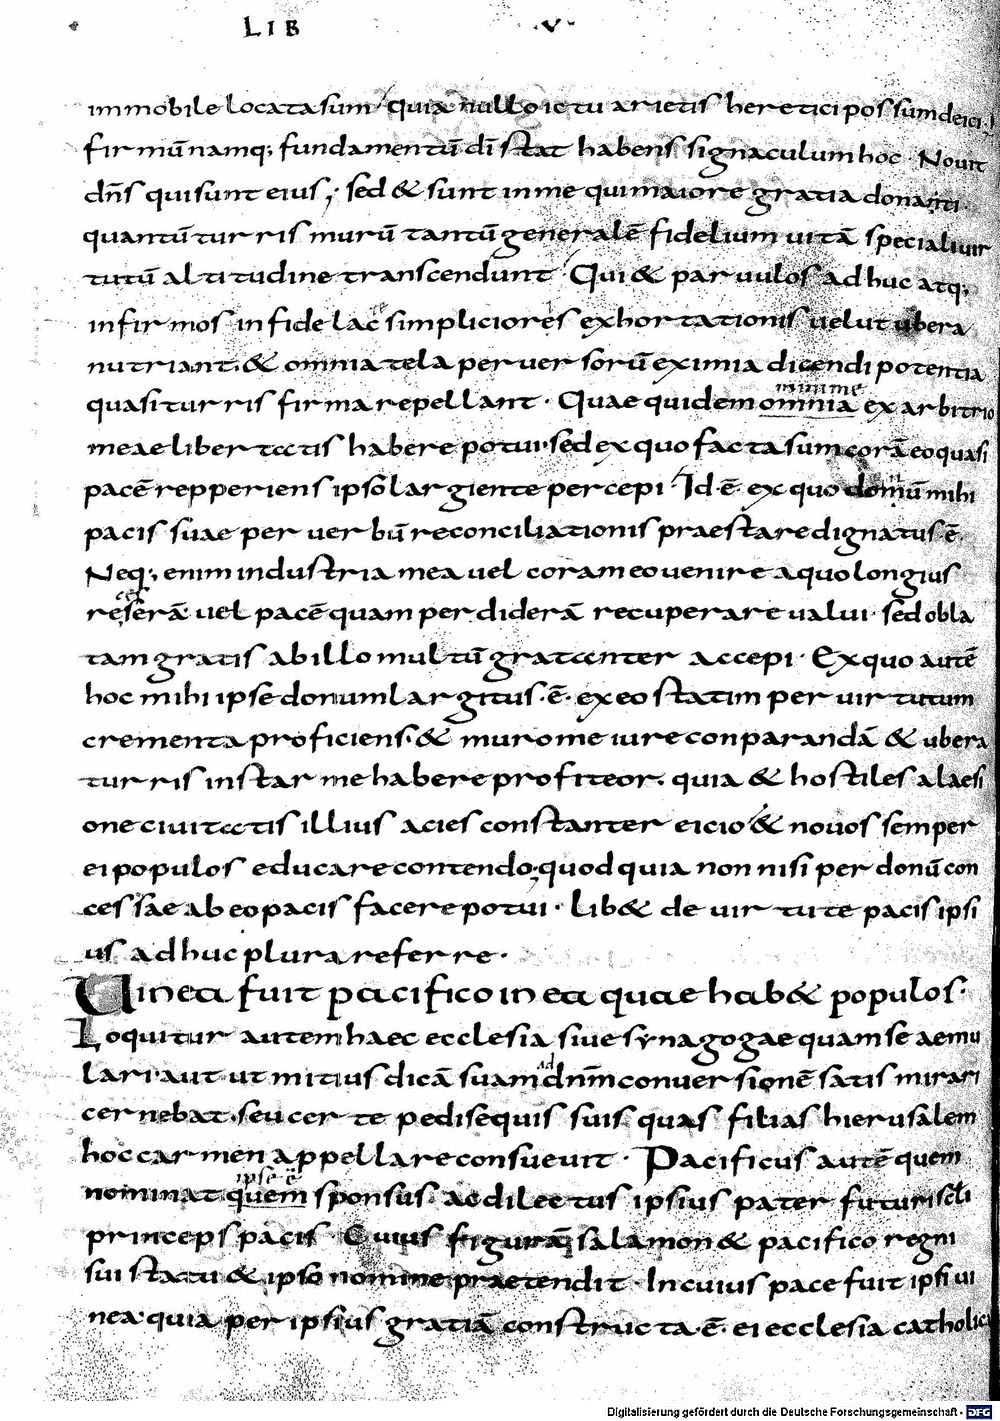 LIB V
immobile locata sum quia nullo ictu arietis heretici possum deici.
firmū namq; fundamentū dī stat habens signaculum hoc. Nouit
dn̄s qui sunt eius; sed & sunt in me qui maiore gratia donati.
quantū turris murū tantū generalē fidelium uitā speciali uir
tutū altitudine transcendunt. Qui & paruulos adhuc atq;
infirmos in fide lac simplicioris exhortationis uelut ubera
nutriant. & omnia tela peruersorū eximia dicendi potentia
minime
quasi turris firma repellant. Quae quidem omnia ex arbitrio
meae libertatis habere potui. sed ex quo facta sum corā eo quasi
pacē repperiens ipso largiente percepi. Id ē. ex quo domū mihi
pacis suae per uerbū reconciliationis praestare dignatus ē.
Neq; enim industria mea uel coram eo uenire a quo longius
reseserā. uel pacē quam perdiderā recuperare ualui. sed obla
tam gratis ab illo multū gratanter accepi. Ex quo autē
hoc mihi ipse donum largitus. ē. ex eo statim per uirtutum
crementa proficiens. & muro me iure conparandā & ubera
turris instar me habere profiteor. quia & hostiles a laesi
one ciuitatis illius acies constanter eicio & nouos semper
ei populos educare contendo; quod quia non nisi per donū con
cessae ab eo pacis facere potui. Lib& de uirtute pacis ipsi
us adhuc plura referre.
Uinea fuit pacifico in ea quae hab& populos.
Loquitur autem haec ecclesia siue synagogae quam se aemu
lari. aut ut mitius dicā suam ad dnm̄ conuersionē satis mirari
cernebat. seu certe pedisequis suis quas filias hierusalem
hoc carmen appellare consueuit. Pacificus autē quem
ipse ē
nominat quem sponsus ac dilectus ipsius pater futuri sc̄li
princeps pacis. Cuius figurā salamon & pacifico regni
sui statu & ipso nomine praetendit. In cuius pace fuit ipsi ui
nea. quia per ipsius gratiā constructa. ē. ei ecclesia catholica
Digitalisierung gefördert durch die Deutsche Forschungsgemeinschaft - DFG